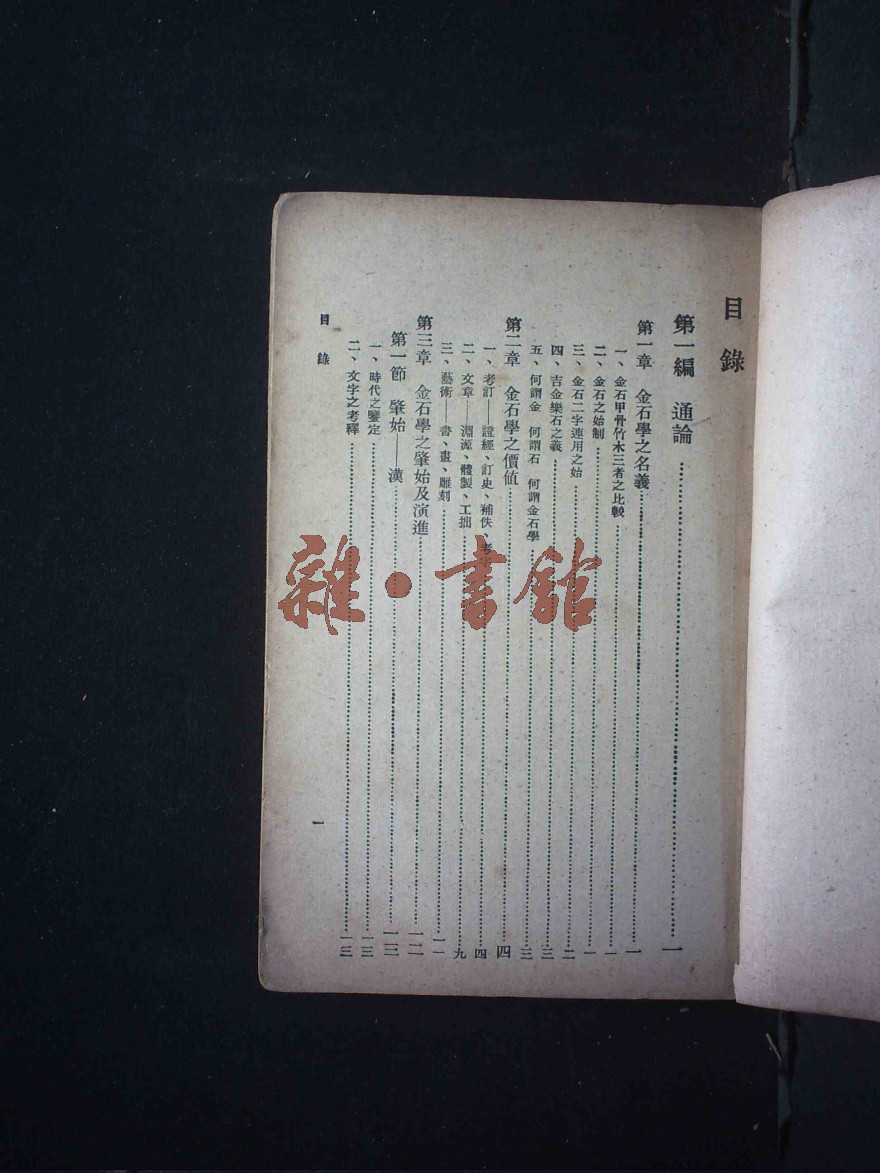 目錄
第一編 通論………一
第一章 金石學之名義………一
一、金石甲骨竹木三者之比較………一
二、金石之始制………一
三、金石二字連用之始………二
四、吉金樂石之義………三
五、何謂金 何謂石 何謂金石學………三
第二章 金石學之價值………四
一、考訂——證經、訂史、補佚、考字………四
二、文章——淵源、體製、工拙………九
三、藝術——書、畫、雕刻………一一
第三章 金石學之肇始及演進………一二
第一節 肇始——漢………一三
一、時代之鑒定………一三
二、文字之考釋………一三
目錄
一
雜·書館